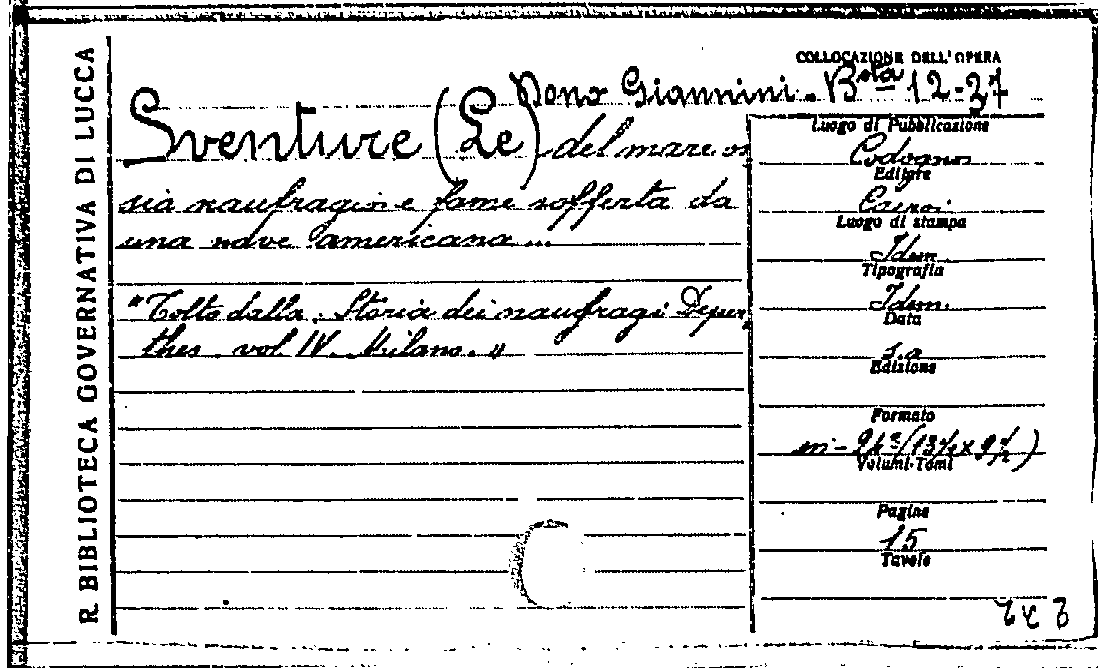 R. BIBLIOTECA GOVERNATIVA DI LUCCA
COLLOCAZIONE DELL'OPERA
Dono Giannini. Bsta 12-27
Sventure (Le) del mare os
sia naufragio e fame sofferta da
una nave americana...
"Tolto dalla Storia dei naufragi Deper
thes vol IV. Milano."
Luogo di Pubblicazione
Codogno
Editore
Cairo
Luogo di stampa
Idem
Tipografia
Idem.
Data
s.a
Edizione
Formato
in-24º (13½ x 9½)
Volumi-Tomi
Pagine
15
Tavole